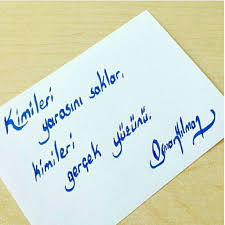 Kimileri
yarasını saklar,
kimileri
gerçek yüzünü.